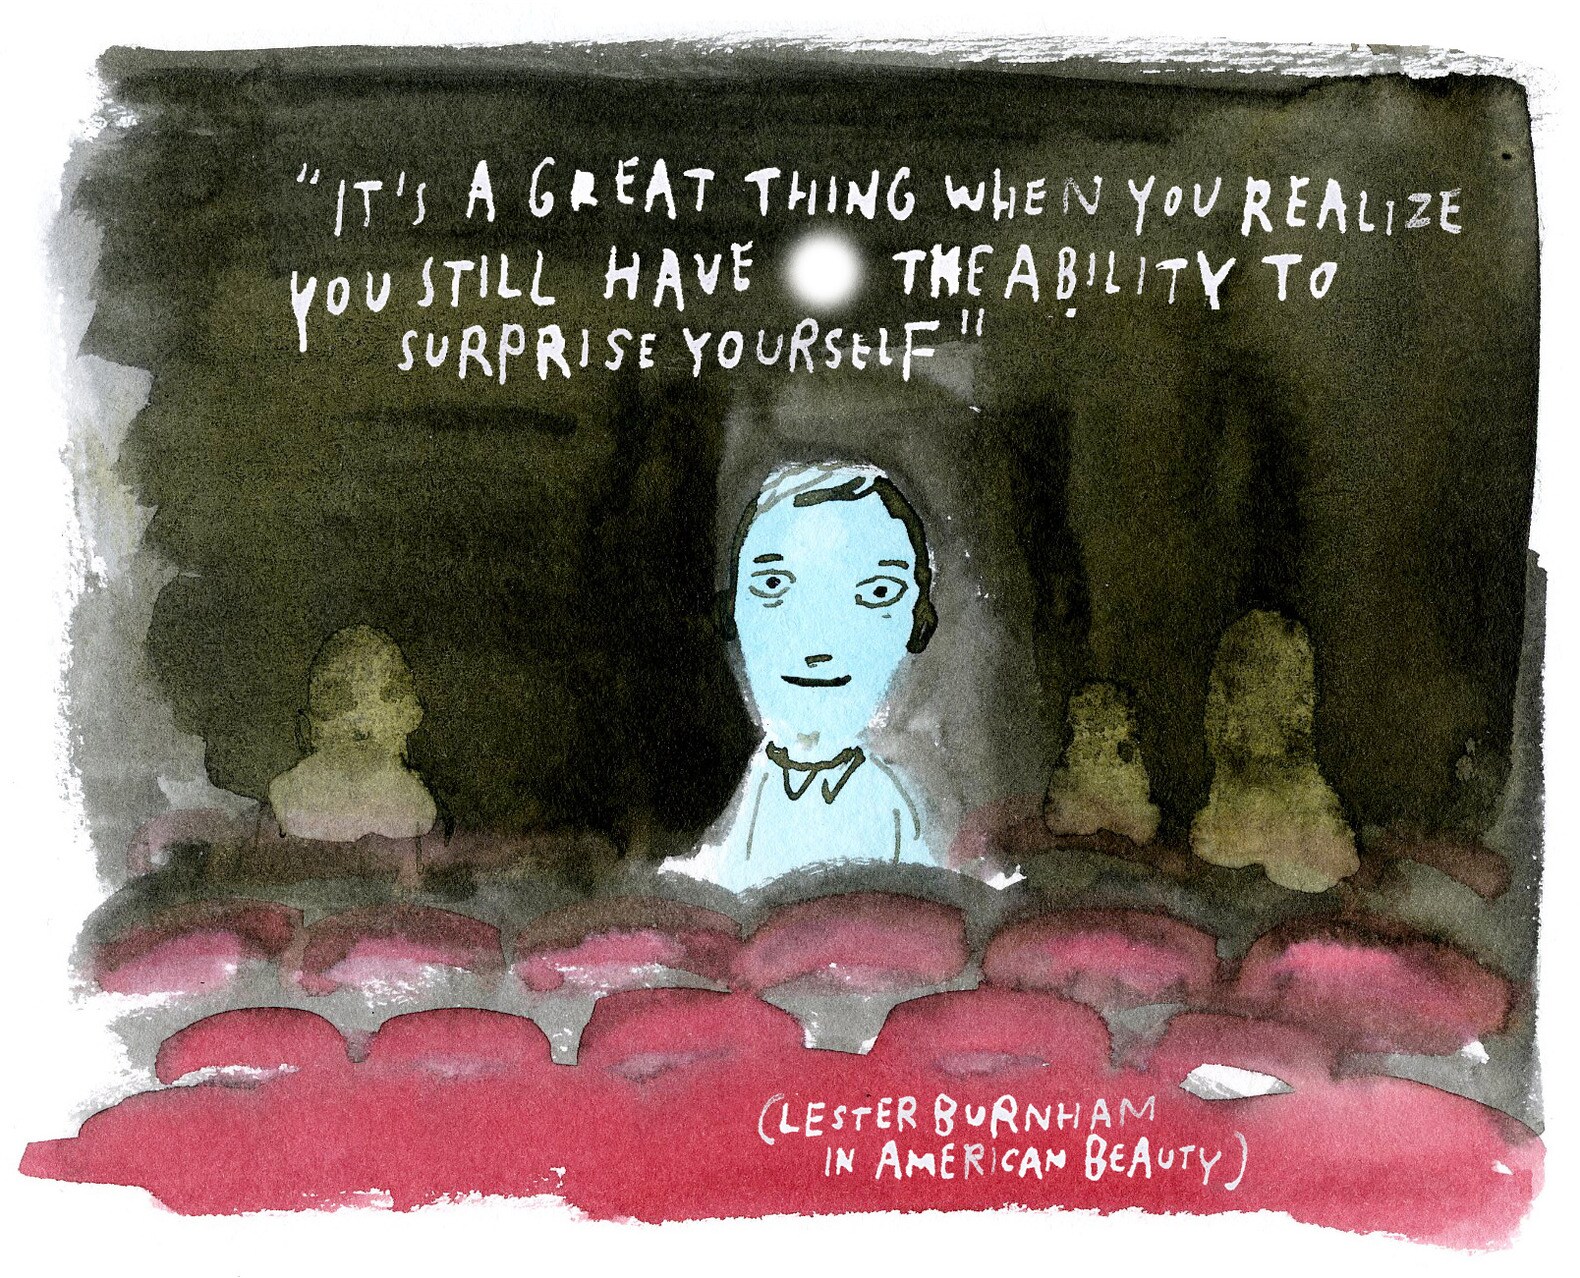 "IT'S A GREAT THING WHEN YOU REALIZE
YOU STILL HAVE THE ABILITY TO
SURPRISE YOURSELF"
(LESTER BURNHAM
IN AMERICAN BEAUTY)